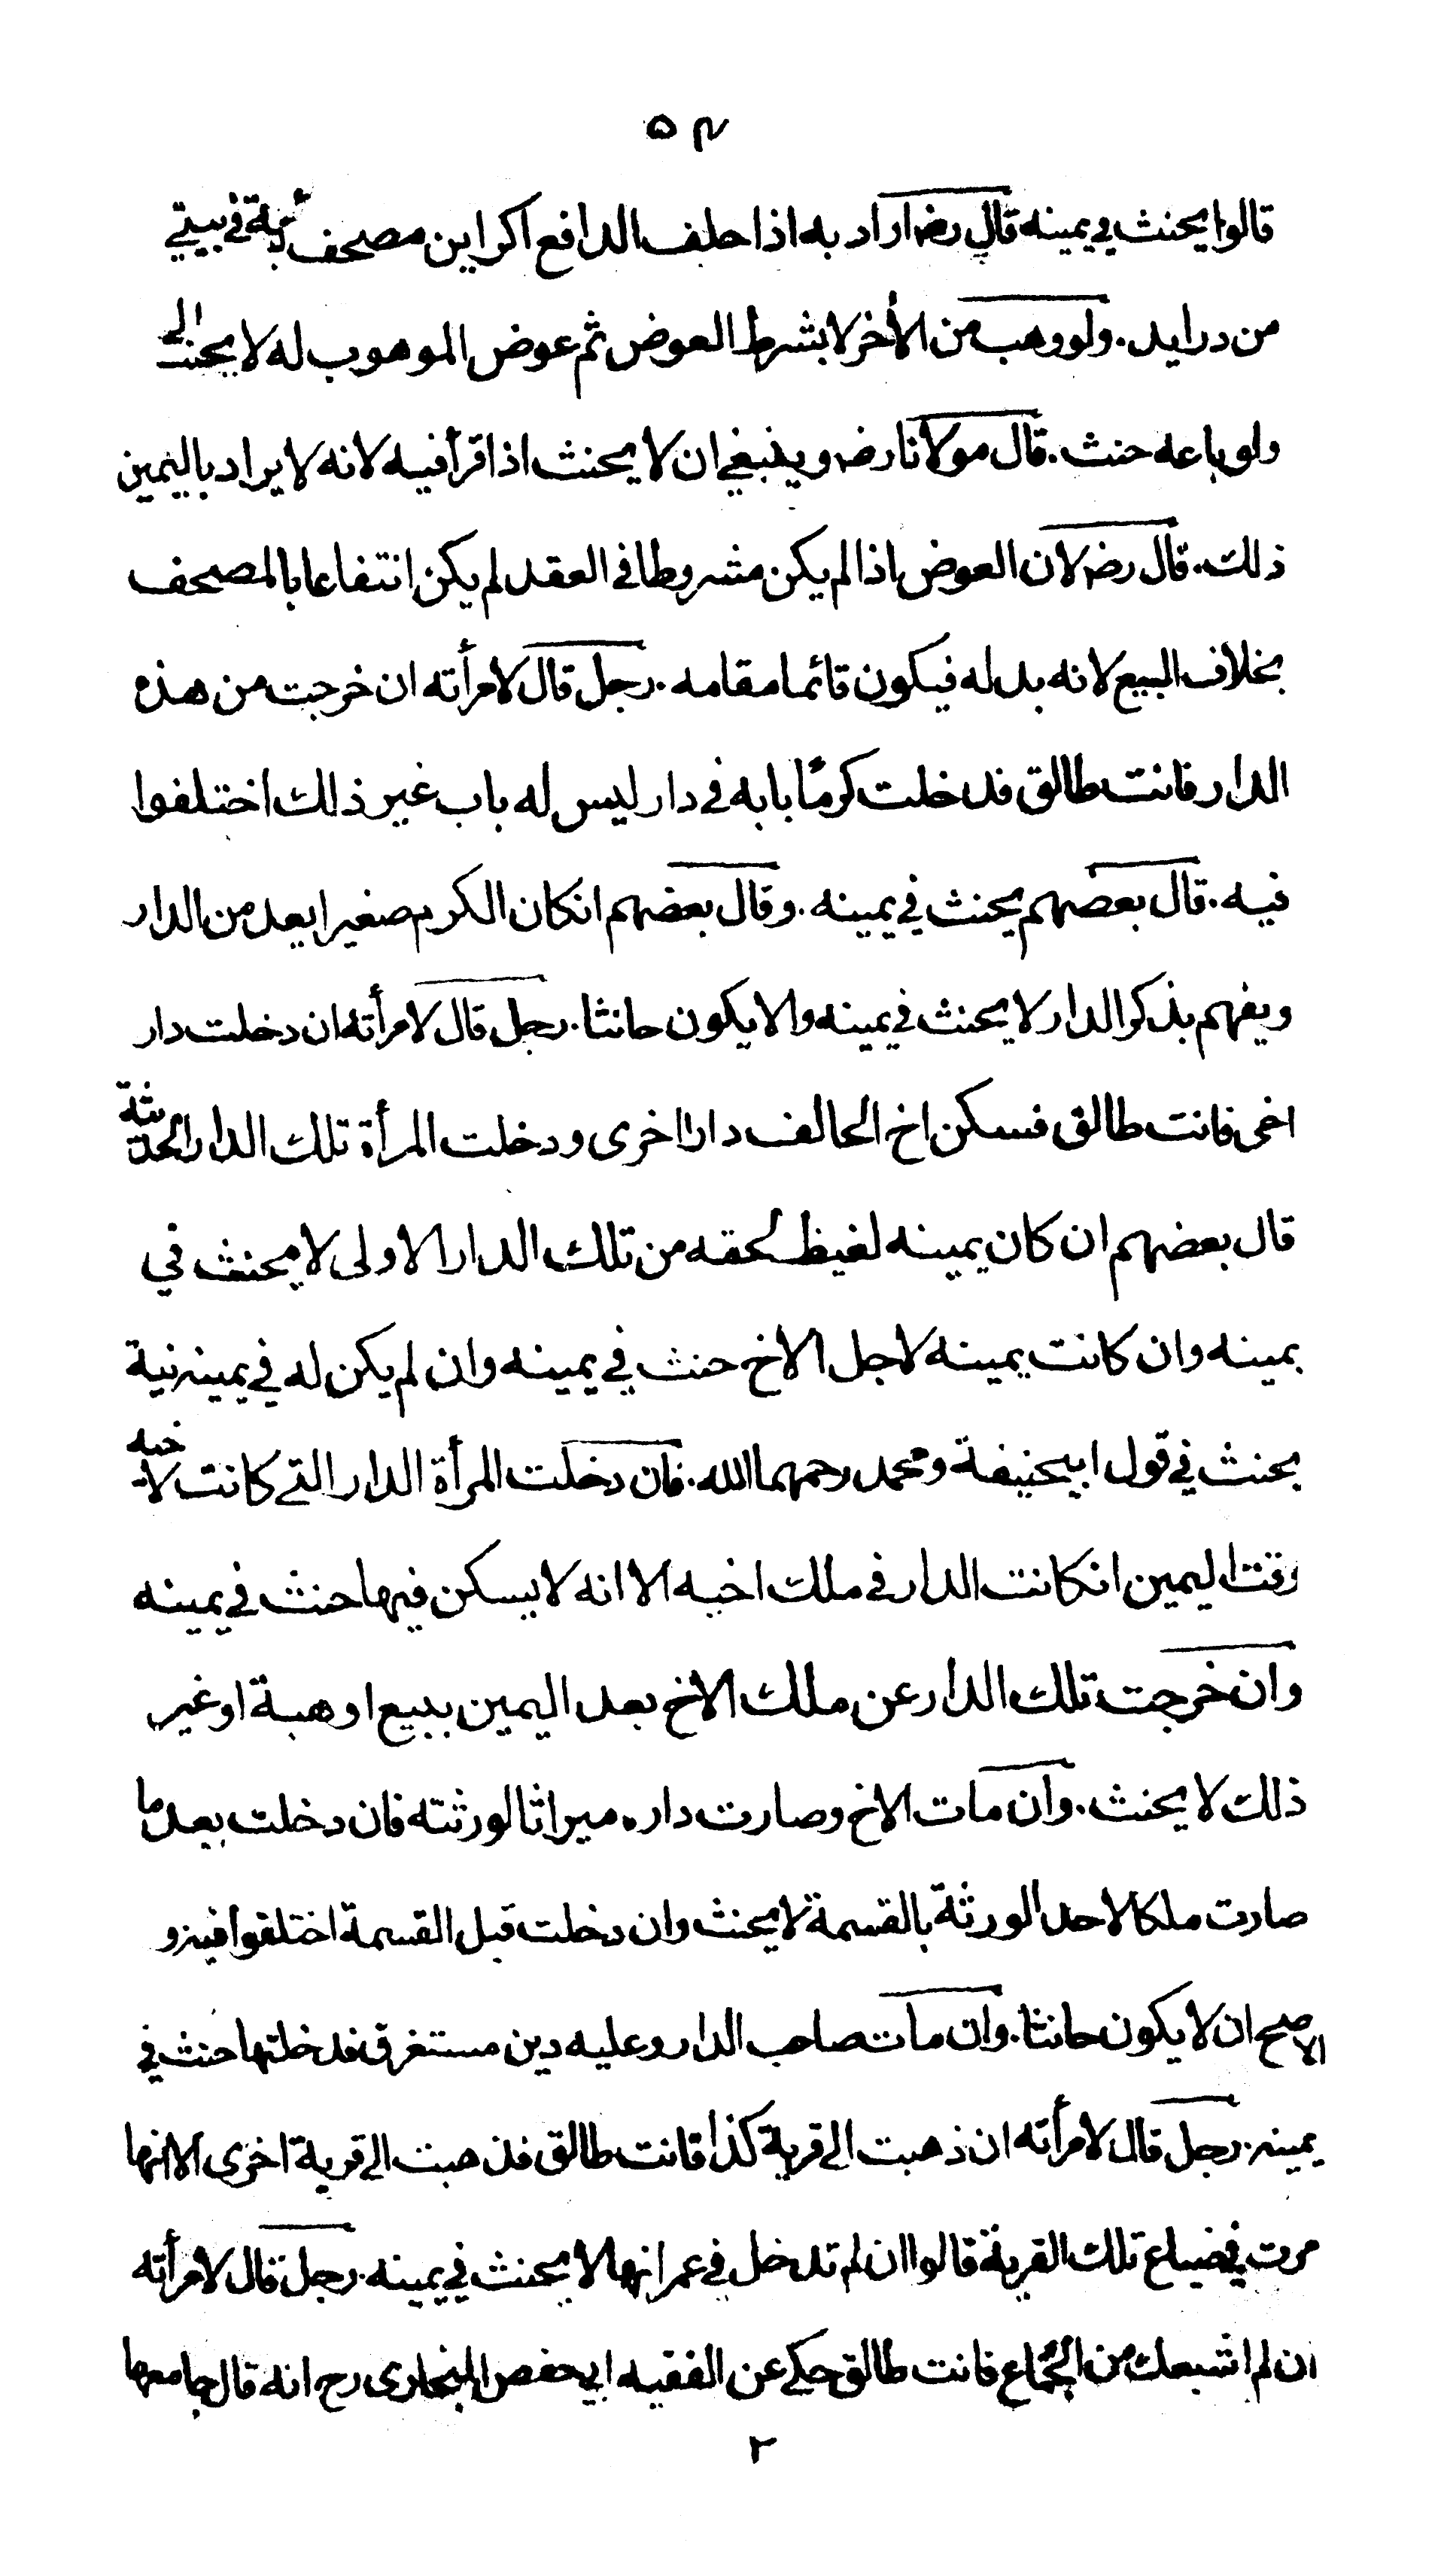 ٥٤
قالوا يحنث في يمينه قال رضه اراد به اذا حلف الدافع اكر اين مصحف بيتي
من درايد. ولو وهب من الأخر لا بشرط العوض ثم عوض الموهوب له لا يحنث الحالف
ولو باعه حنث. قال مولانا رضه وينبغي ان لا يحنث اذا قرأ فيه لانه لا يراد باليمين
ذلك. قال رضه لان العوض اذا لم يكن مشروطا في العقد لم يكن انتفاعا بالمصحف
بخلاف البيع لانه بدله فيكون قائما مقامه. رجل قال لامرأته ان خرجت من هذه
الدار فانت طالق فدخلت كرمًا بابه في دار ليس له باب غير ذلك اختلفوا
فيه. قال بعضهم يحنث في يمينه. وقال بعضهم انكان الكرم صغيرا يعد من الدار
ويفهم بذكر الدار لا يحنث في يمينه والا يكون حانثا. رجل قال لامرأته ان دخلت دار
اخي فانت طالق فسكن اخ الحالف دارا اخرى ودخلت المرأة تلك الدار الحديثة
قال بعضهم ان كان يمينه لغيظ لحقه من تلك الدار الاولى لا يحنث في
يمينه وان كانت يمينه لاجل الاخ حنث في يمينه وان لم يكن له في يمينه نية
يحنث في قول ابيحنيفة ومحمد رحمهما الله. فان دخلت المرأة الدار التي كانت لاخيه
وقت اليمين انكانت الدار في ملك اخيه الا انه لا يسكن فيها حنث في يمينه
وان خرجت تلك الدار عن ملك الاخ بعد اليمين ببيع او هبة او غير
ذلك لا يحنث. وان مات الاخ وصارت داره ميراثا لورثته فان دخلت بعد ما
صارت ملكا لاحد الورثة بالقسمة لا يحنث وان دخلت قبل القسمة اختلفوا فيه و
الاصح ان لا يكون حانثا. وان مات صاحب الدار وعليه دين مستغرق فدخلتها حنث في
يمينه. رجل قال لامرأته ان ذهبت الى قرية كذا فانت طالق فذهبت الى قرية اخرى الا انها
مرت في ضياع تلك القرية قالوا ان لم تدخل في عمرانها لا يحنث في يمينه. رجل قال لامرأته
ان لم اشبعك من الجماع فانت طالق حكي عن الفقيه ابي حفص البخارى رح انه قال جامعها
٢